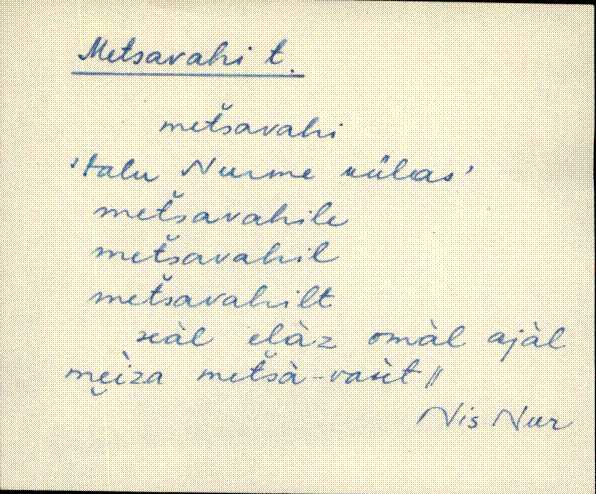 Metsavahi t.
metšavahi
'talu Nurme külas'
metšavahile
metšavahil
metšavahilt
seàl elàz omàl ajàl
mèiza metšà-vaìt //
Nis Nur